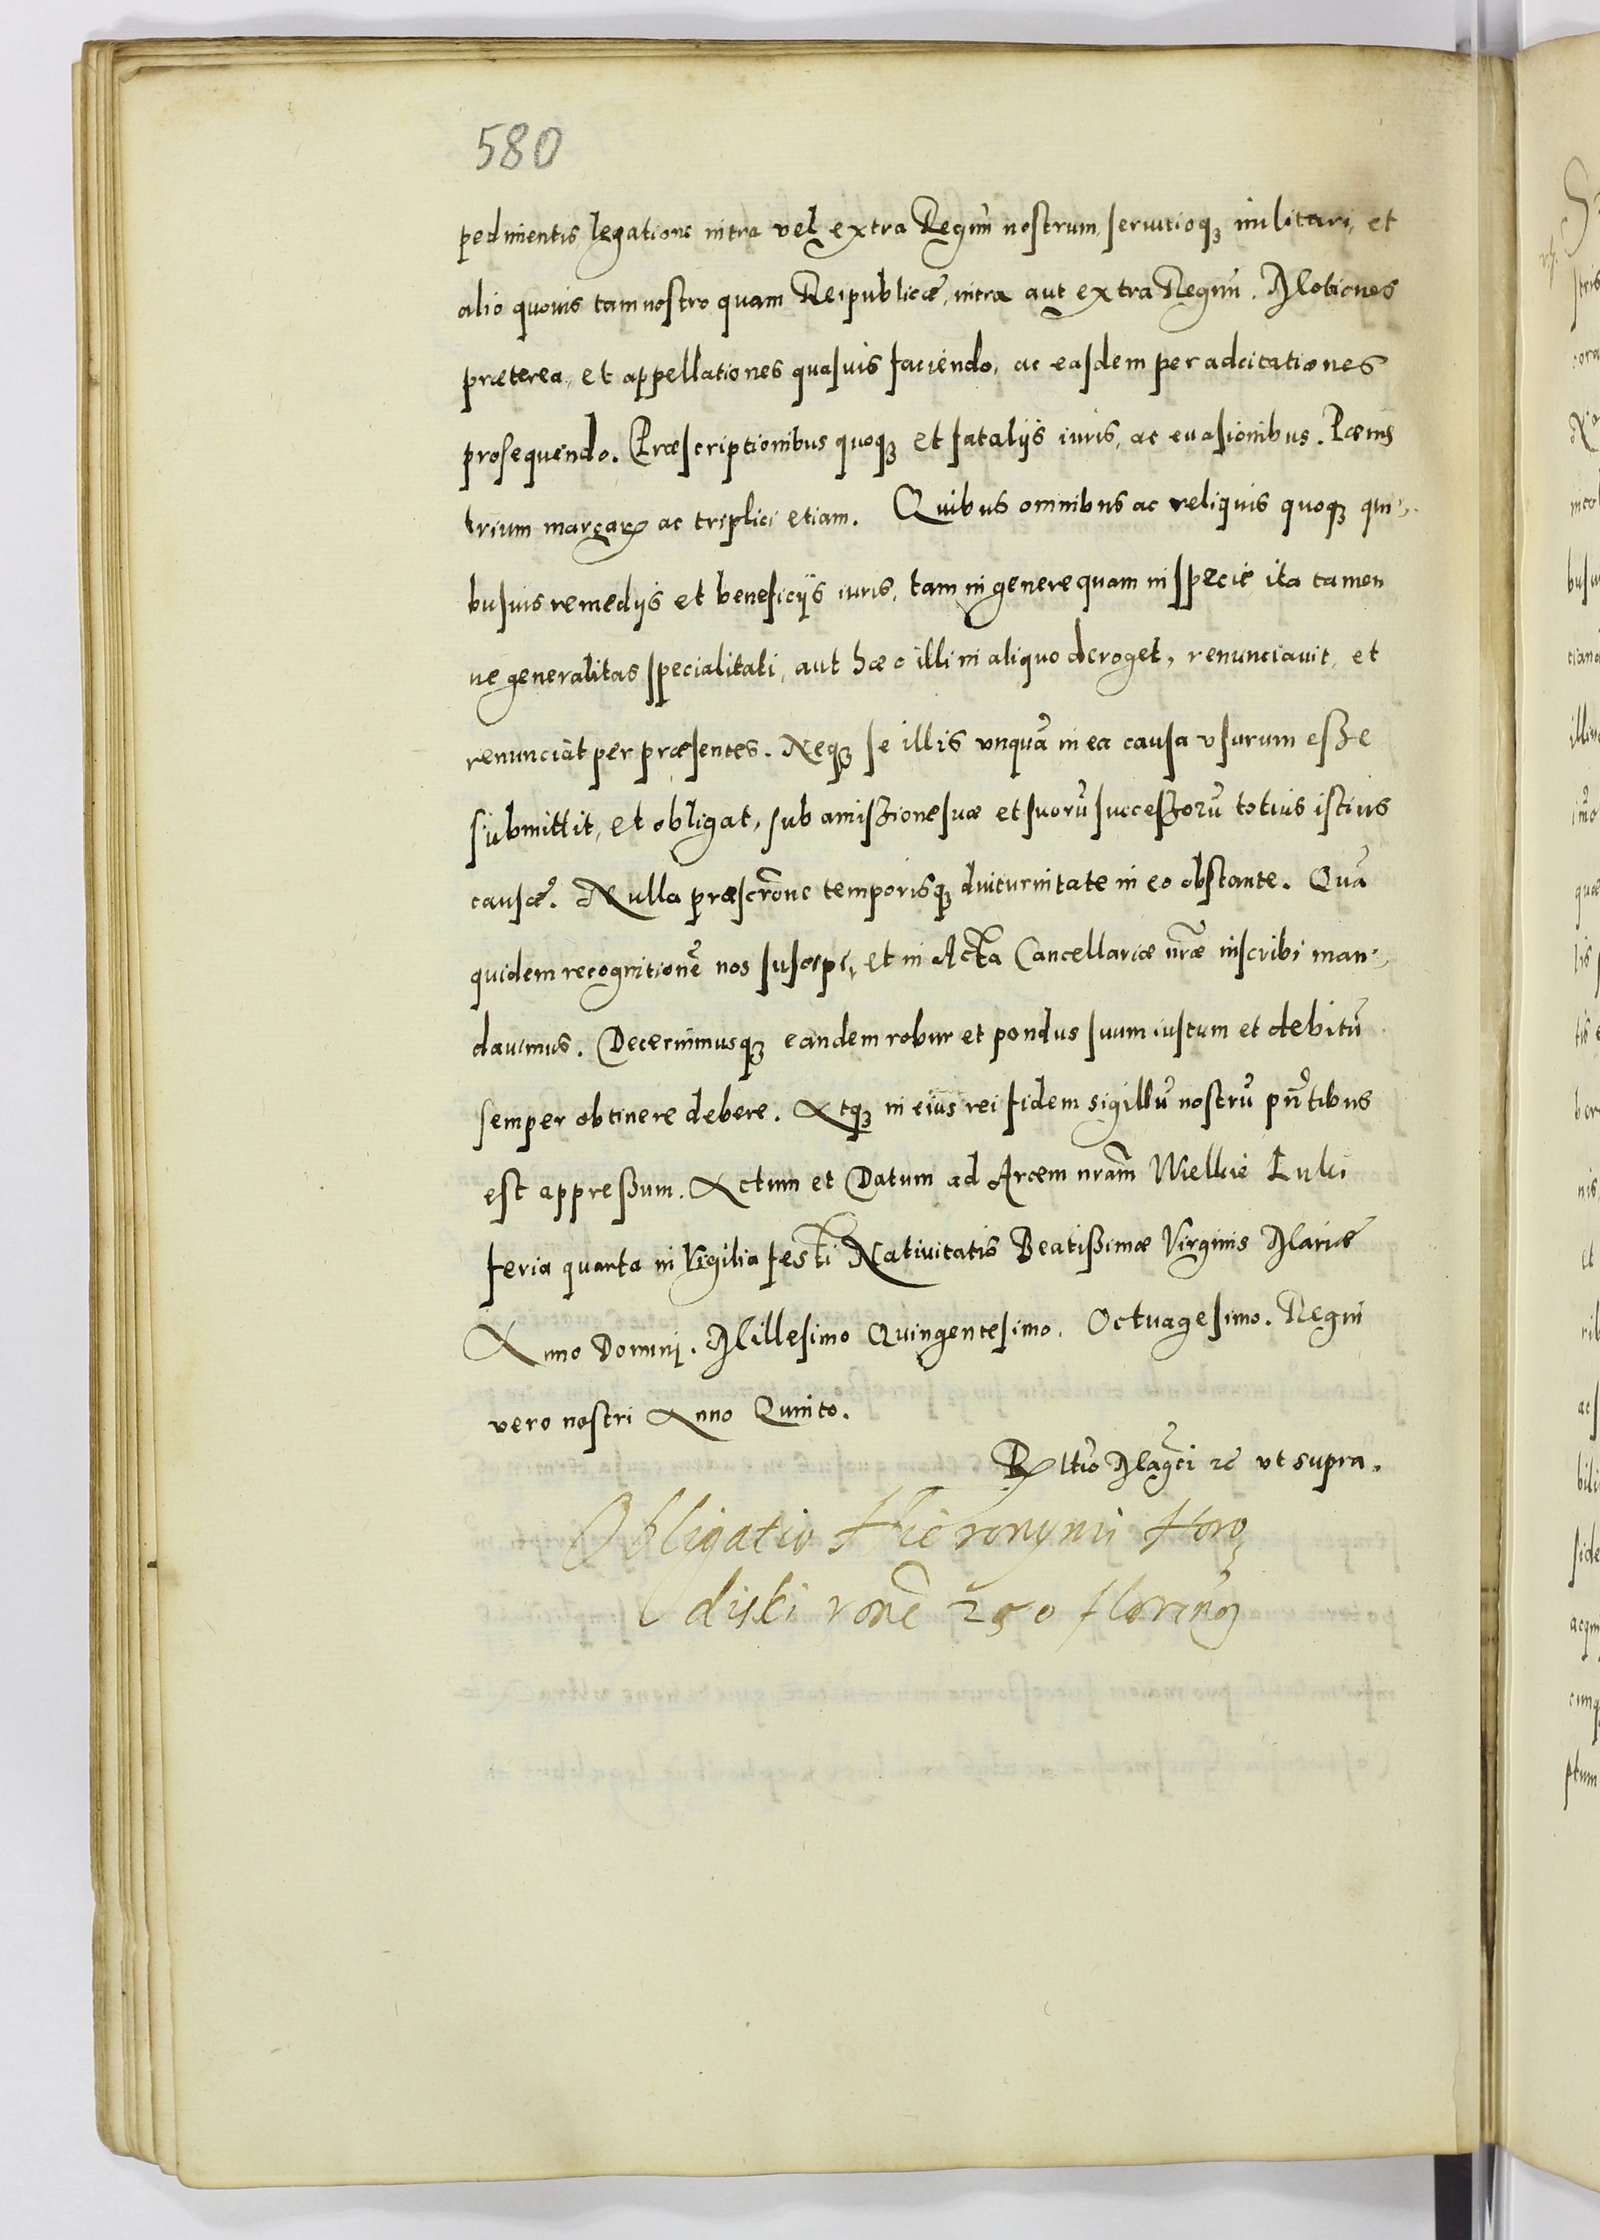 580
pedimentis legatione intra vel extra Regnũ nostrum, seruitioq₃ militari, et
alio quouis tam nostro quam Reipublicæ, intra aut extra Regnũ. Motiones
præterea, et appellationes quasuis faciendo, ac easdem per adcitationes
prosequendo. Præscriptionibus quoq₃ et fatalijs iuris, ac euasionibus. Pœnis
trium marcarꝝ ac triplici etiam. Quibus omnibus ac reliquis quoq₃ qui-
busuis remedijs et beneficijs iuris, tam in genere quam in specie ita tamen
ne generalitas specialitati, aut hæc illi in aliquo deroget, renunciauit, et
renunciat per præsentes. Neq₃ se illis vnquã in ea causa vsurum esse
submittit, et obligat, sub amissione suæ et suorũ successorũ totius istius
causæ. Nulla præscrõne temporisq₃ diuturnitate in eo obstante. Quã
quidem recognitionẽ nos suscepi, et in Acta Cancellariæ nr̃æ inscribi man-
dauimus. Decernimusq₃ eandem robur et pondus suum iustum et debitũ
semper obtinere debere. Atq₃ in eius rei fidem sigillũ nostrũ pñtibus
est appressum. Actum et Datum ad Arcem nr̃am Wielkie Luki
feria quarta in Vigilia festi Natiuitatis Beatissimæ Virginis Mariæ
Anno Domini. Millesimo Quingentesimo. Octuagesimo. Regni
vero nostri Anno Quinto.
Rltio Magci ꝛc vt supra.
Obligatio Hieronymi Horo
diski rone 250 florenoꝝ